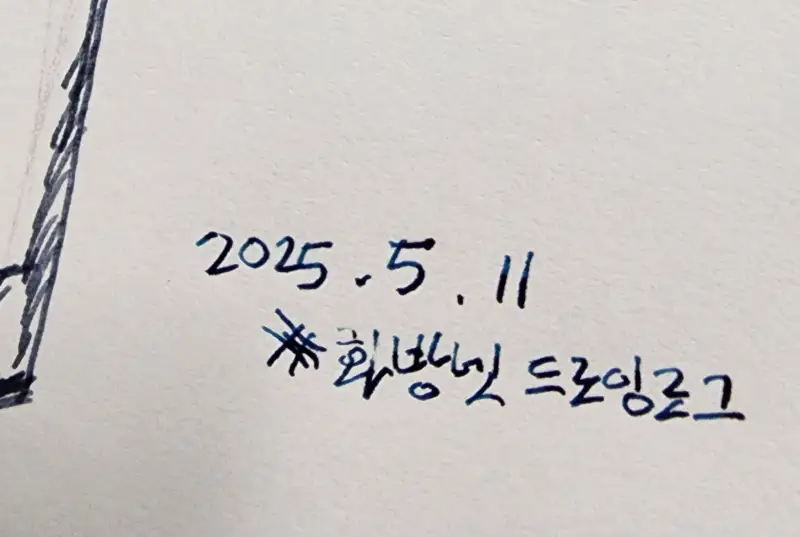 2025.5.11
※화방넷 드로잉로그